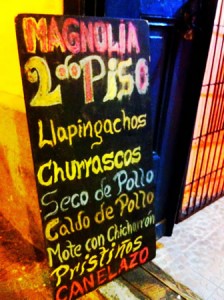 MAGNOLIA
2do PISO
Llapingachos
Churrascos
Seco de Pollo
Caldo de Pollo
Mote con Chicharrón
Pristiños
CANELAZO